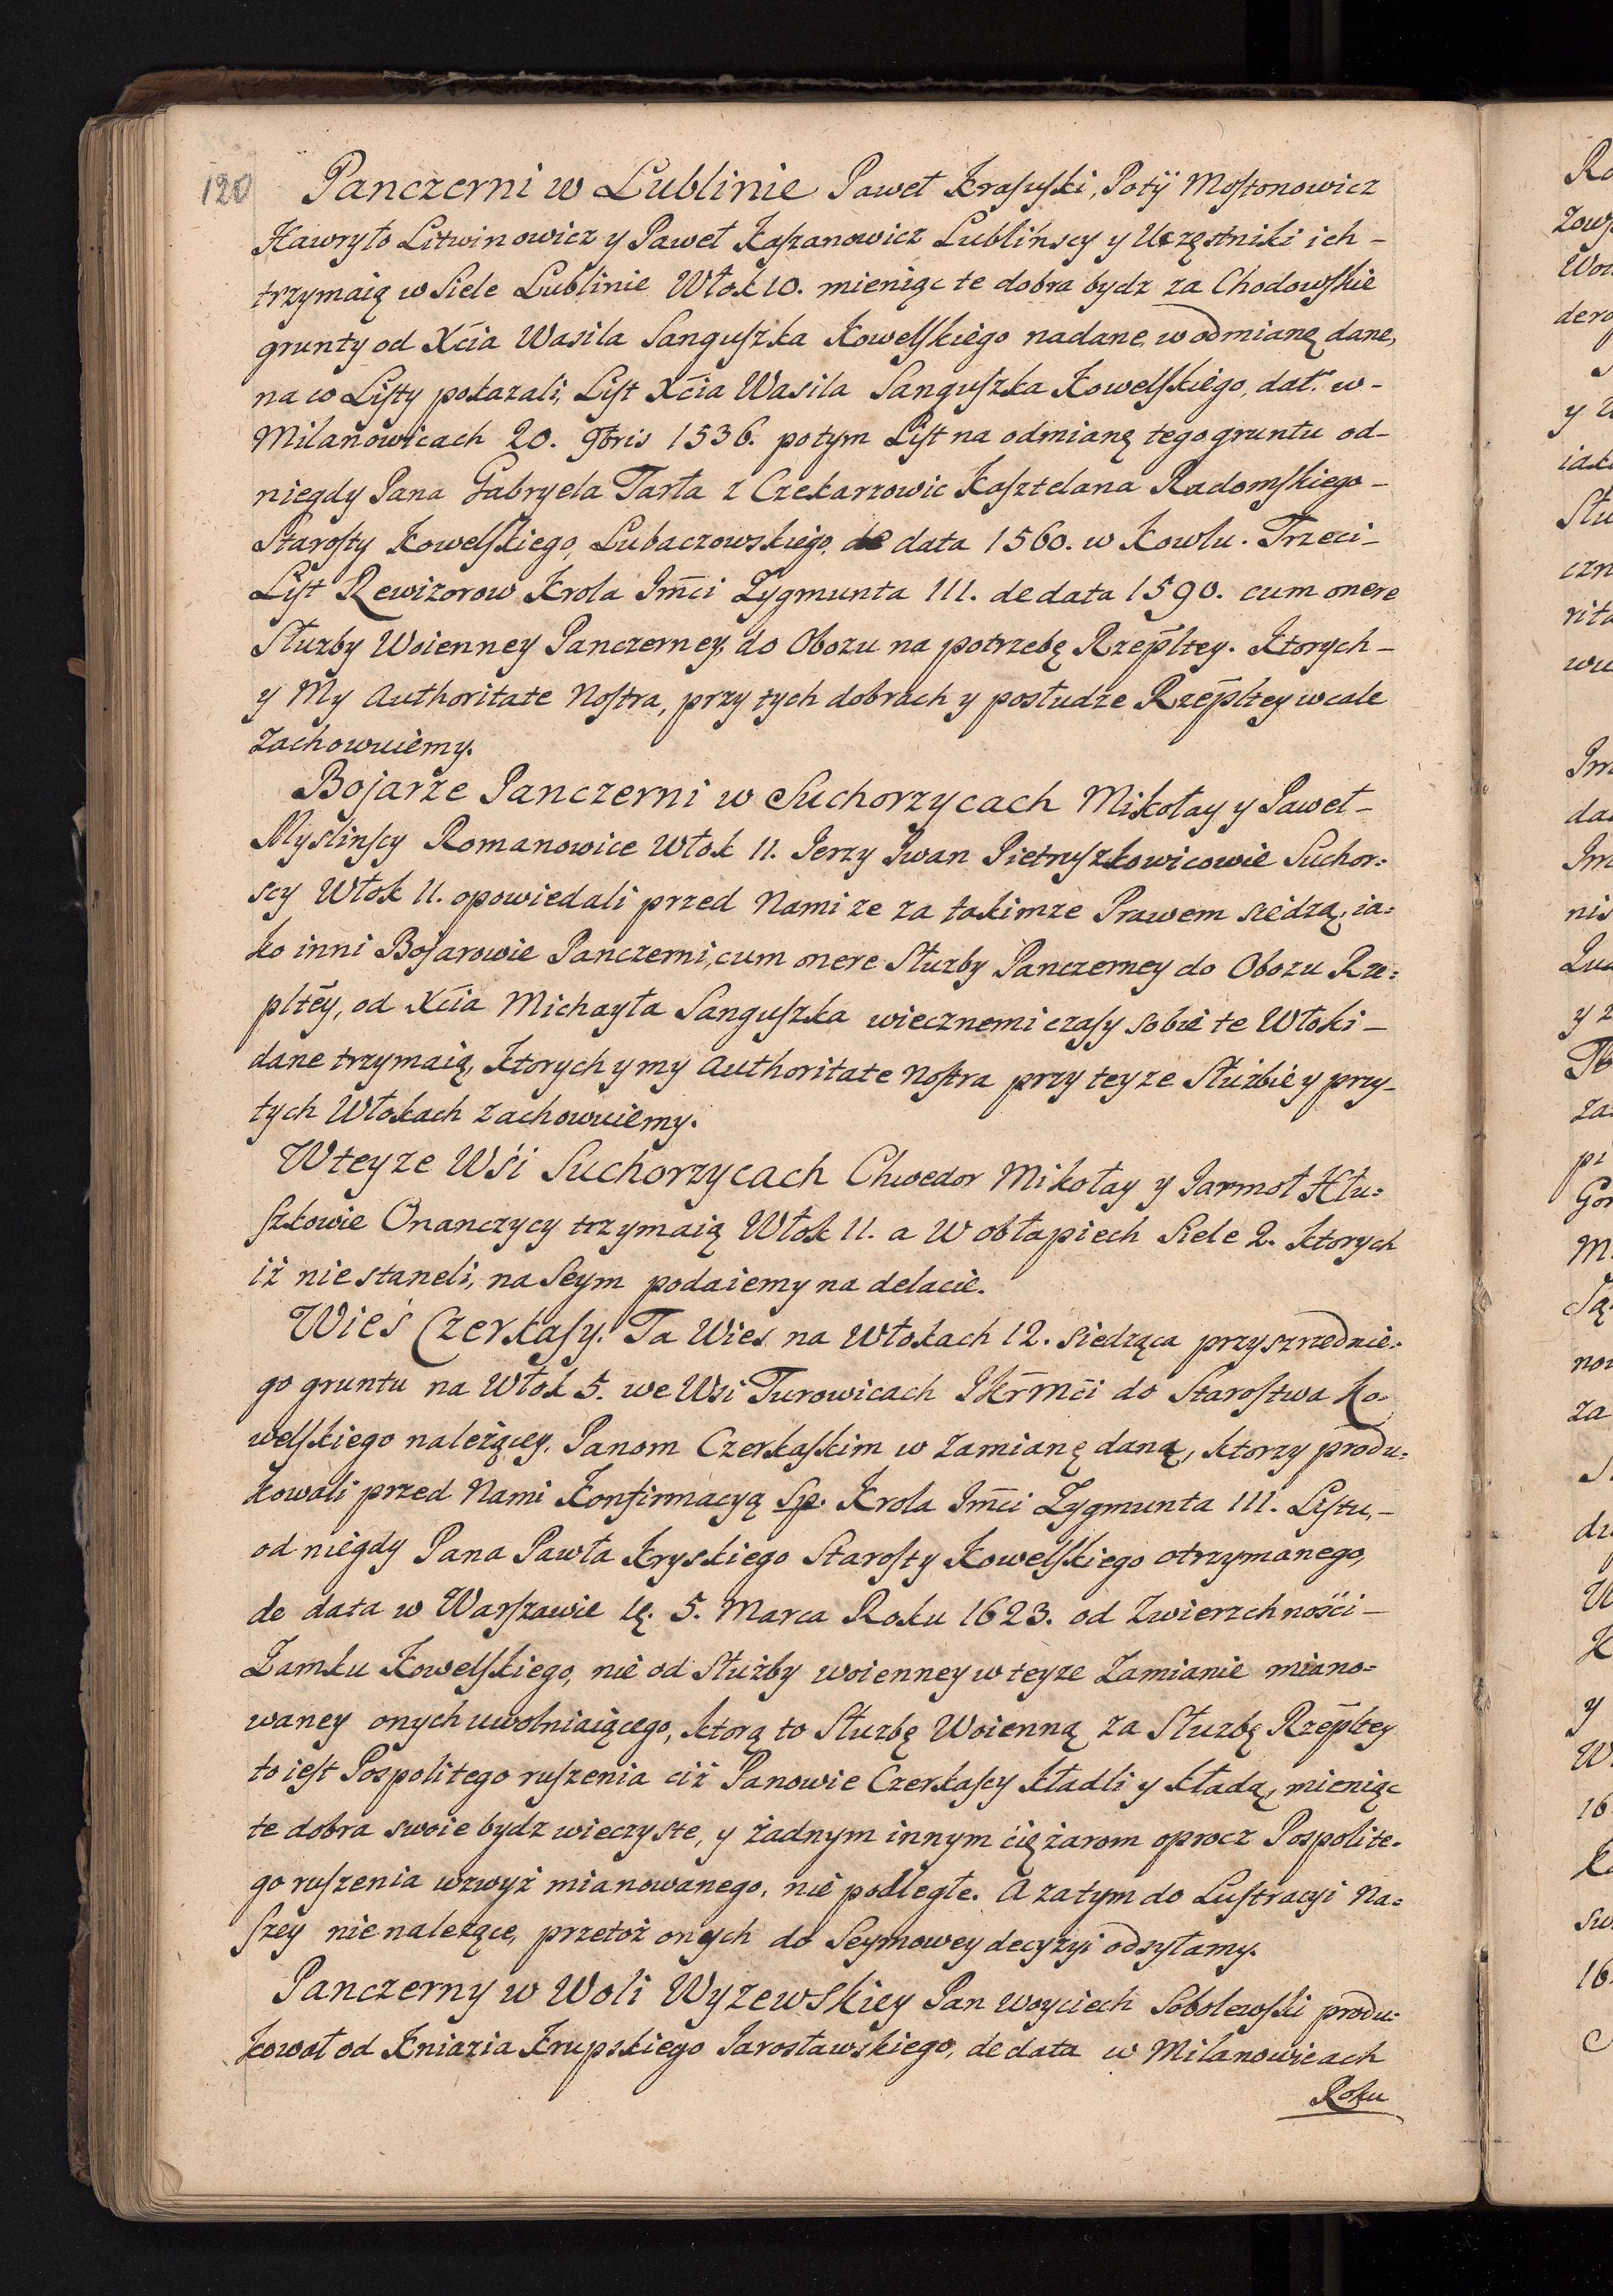 120
Panczerni w Lublinie Paweł Krasuski, Potÿ Mostonowicz
Hawryło Litwinowicz y Paweł Kaszanowicz Lublińscy y Uczęstniki ich –
trzymaią w Siele Lublinie Włok 10. mieniąc te dobra bydz za Chodowskie
grunty od Xcia Wasila Sanguszka Kowelskiego nadane, w odmianę dane,
na co Listy pokazali, List Xcia Wasila Sanguszka Kowelskiego, dat. w –
Milanowicach 20. 9bris 1536. potym List na odmianę tego gruntu od –
niegdy Pana Gabryela Tarła z Czekarzowic Kasztelana Radomskiego –
Starosty Kowelskiego, Lubaczowskiego, de data 1560. w Kowlu. Trzeci –
List Rewizorow Krola Jmci Zygmunta III. de data 1590. cum onere
Służby Woienney Panczerney, do Obozu na potrzebę Rzepltey. Ktorych –
y My Authoritate Nostra, przy tych dobrach y posłudze Rzepltey wcale
zachowuiemy.
Bojarze Panczerni w Suchorzycach Mikołay y Paweł –
Myslinscy Romanowice Włok 11. Jerzy Jwan Pietruszkowicowie Suchor:
scy Włok 11. opowiedali przed Nami ze za takimze Prawem siedzą, ia:
ko inni Bojarowie Panczerni, cum onere Służby Panczerney do Obozu Rze:
pltey, od Xcia Michayła Sanguszka wiecznemi czasy sobie te Włoki –
dane trzymaią, Ktorych y my Authoritate Nostra przy teyze Służbie y przy –
tych Włokach zachowuiemy.
W teyze Wśi Suchorzycach Chwedor Mikołay y Jarmoł Hłu:
szkowie Onanczycy trzymaią Włok 11. a W obłapiech Siele 2. ktorych
iż nie staneli, na Seym podaiemy na delacie.
Wieś Czerkasy. Ta Wies na Włokach 12. siedząca przy szrednie:
go gruntu na Włok 5. we Wsi Turowicach JKrmci do Starostwa Ko:
welskiego należącey, Panom Czerkaskim w zamianę daną, ktorzy produ:
kowali przed Nami Konfirmacyą Sp. Krola Jmci Zygmunta III. Listu, –
od niegdy Pana Pawła Kryskiego Starosty Kowelskiego otrzymanego,
de data w Warszawie 5. Marca Roku 1623. od Zwierzchności –
Zamku Kowelskiego, nie od Służby woienney w teyze Zamianie miano:
waney onych uwolniaiącego, ktorą to Służbę Woienną za Służbę Rzepltey
to iest Pospolitego ruszenia ciż Panowie Czerkascy kładli y kładą, mieniąc
te dobra swoie bydz wieczyste, y żadnym innym ciężarom oprocz Pospolite:
go ruszenia wzwyż mianowanego, nie podległe. A zatym do Lustracyi Na:
szey nie należące, przetoż onych do Seymowey decyzyi odsyłamy.
Panczerny w Woli Wyzewskiey Pan Woyciech Sobolewski produ:
kował od Kniazia Krupskiego Jarosławskiego, de data w Milanowicach
Roku